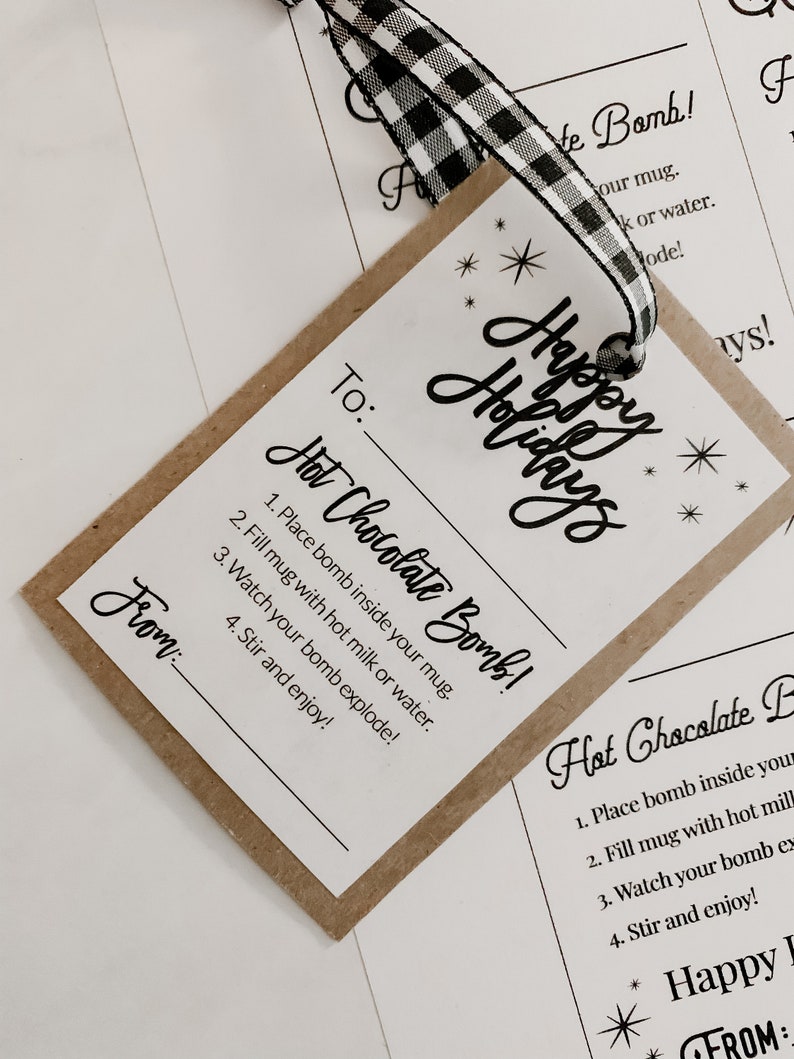 Happy
Holidays
To:
Hot Chocolate Bomb!
1. Place bomb inside your mug.
2. Fill mug with hot milk or water.
3. Watch your bomb explode!
4. Stir and enjoy!
From:
Bomb!
your mug.
or water.
Hot Chocolate
1. Place bomb inside your
2. Fill mug with hot milk
3. Watch your bomb
4. Stir and enjoy!
Happy
FROM: